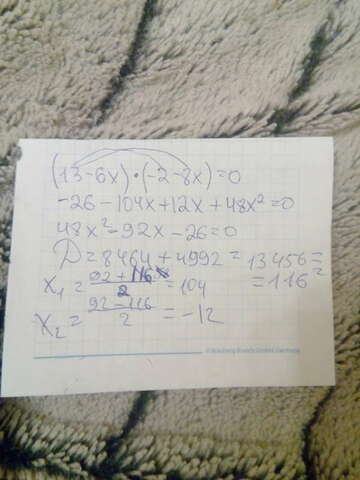 (13-6x)·(-2-8x)=0
-26-104x+12x+48x²=0
48x²-92x-26=0
D=8464+4992=13456=
=116²
x₁=\frac{92+116}{2}=104
x₂=\frac{92-116}{2}=-12